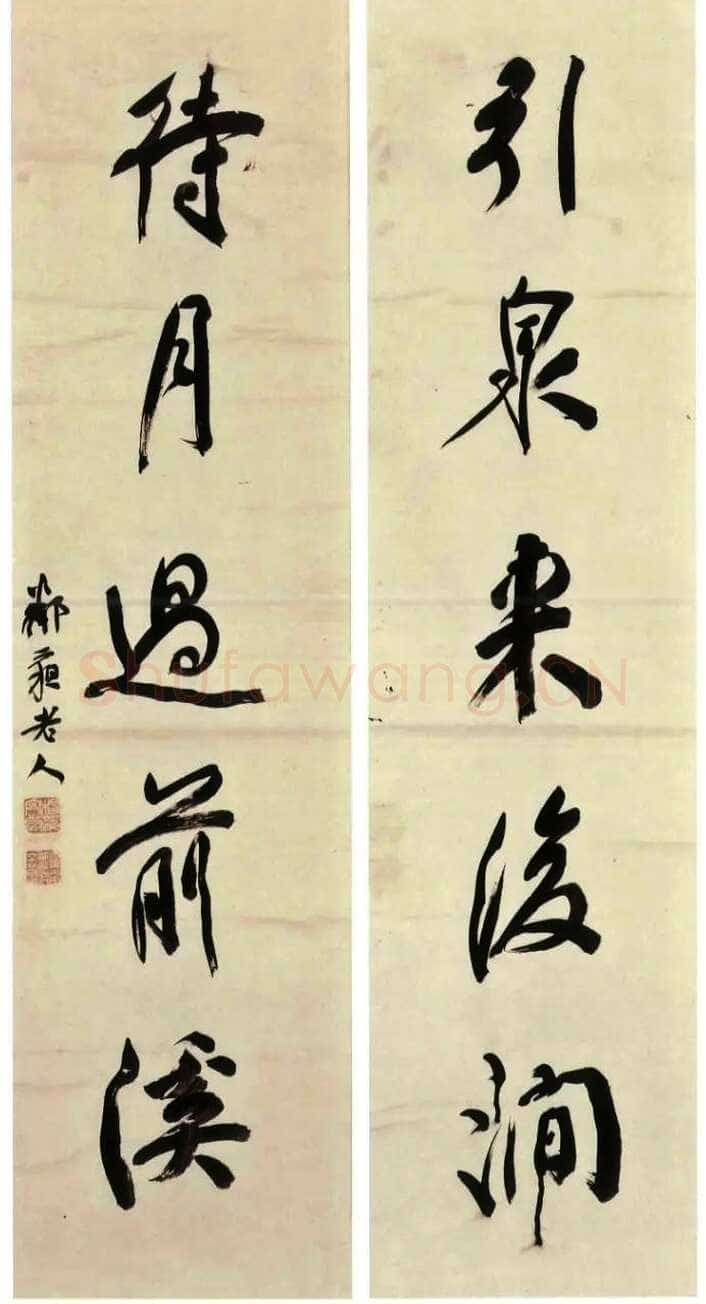 引泉来後澗
待月過前溪
鄰蘇老人
Shufawang.CN